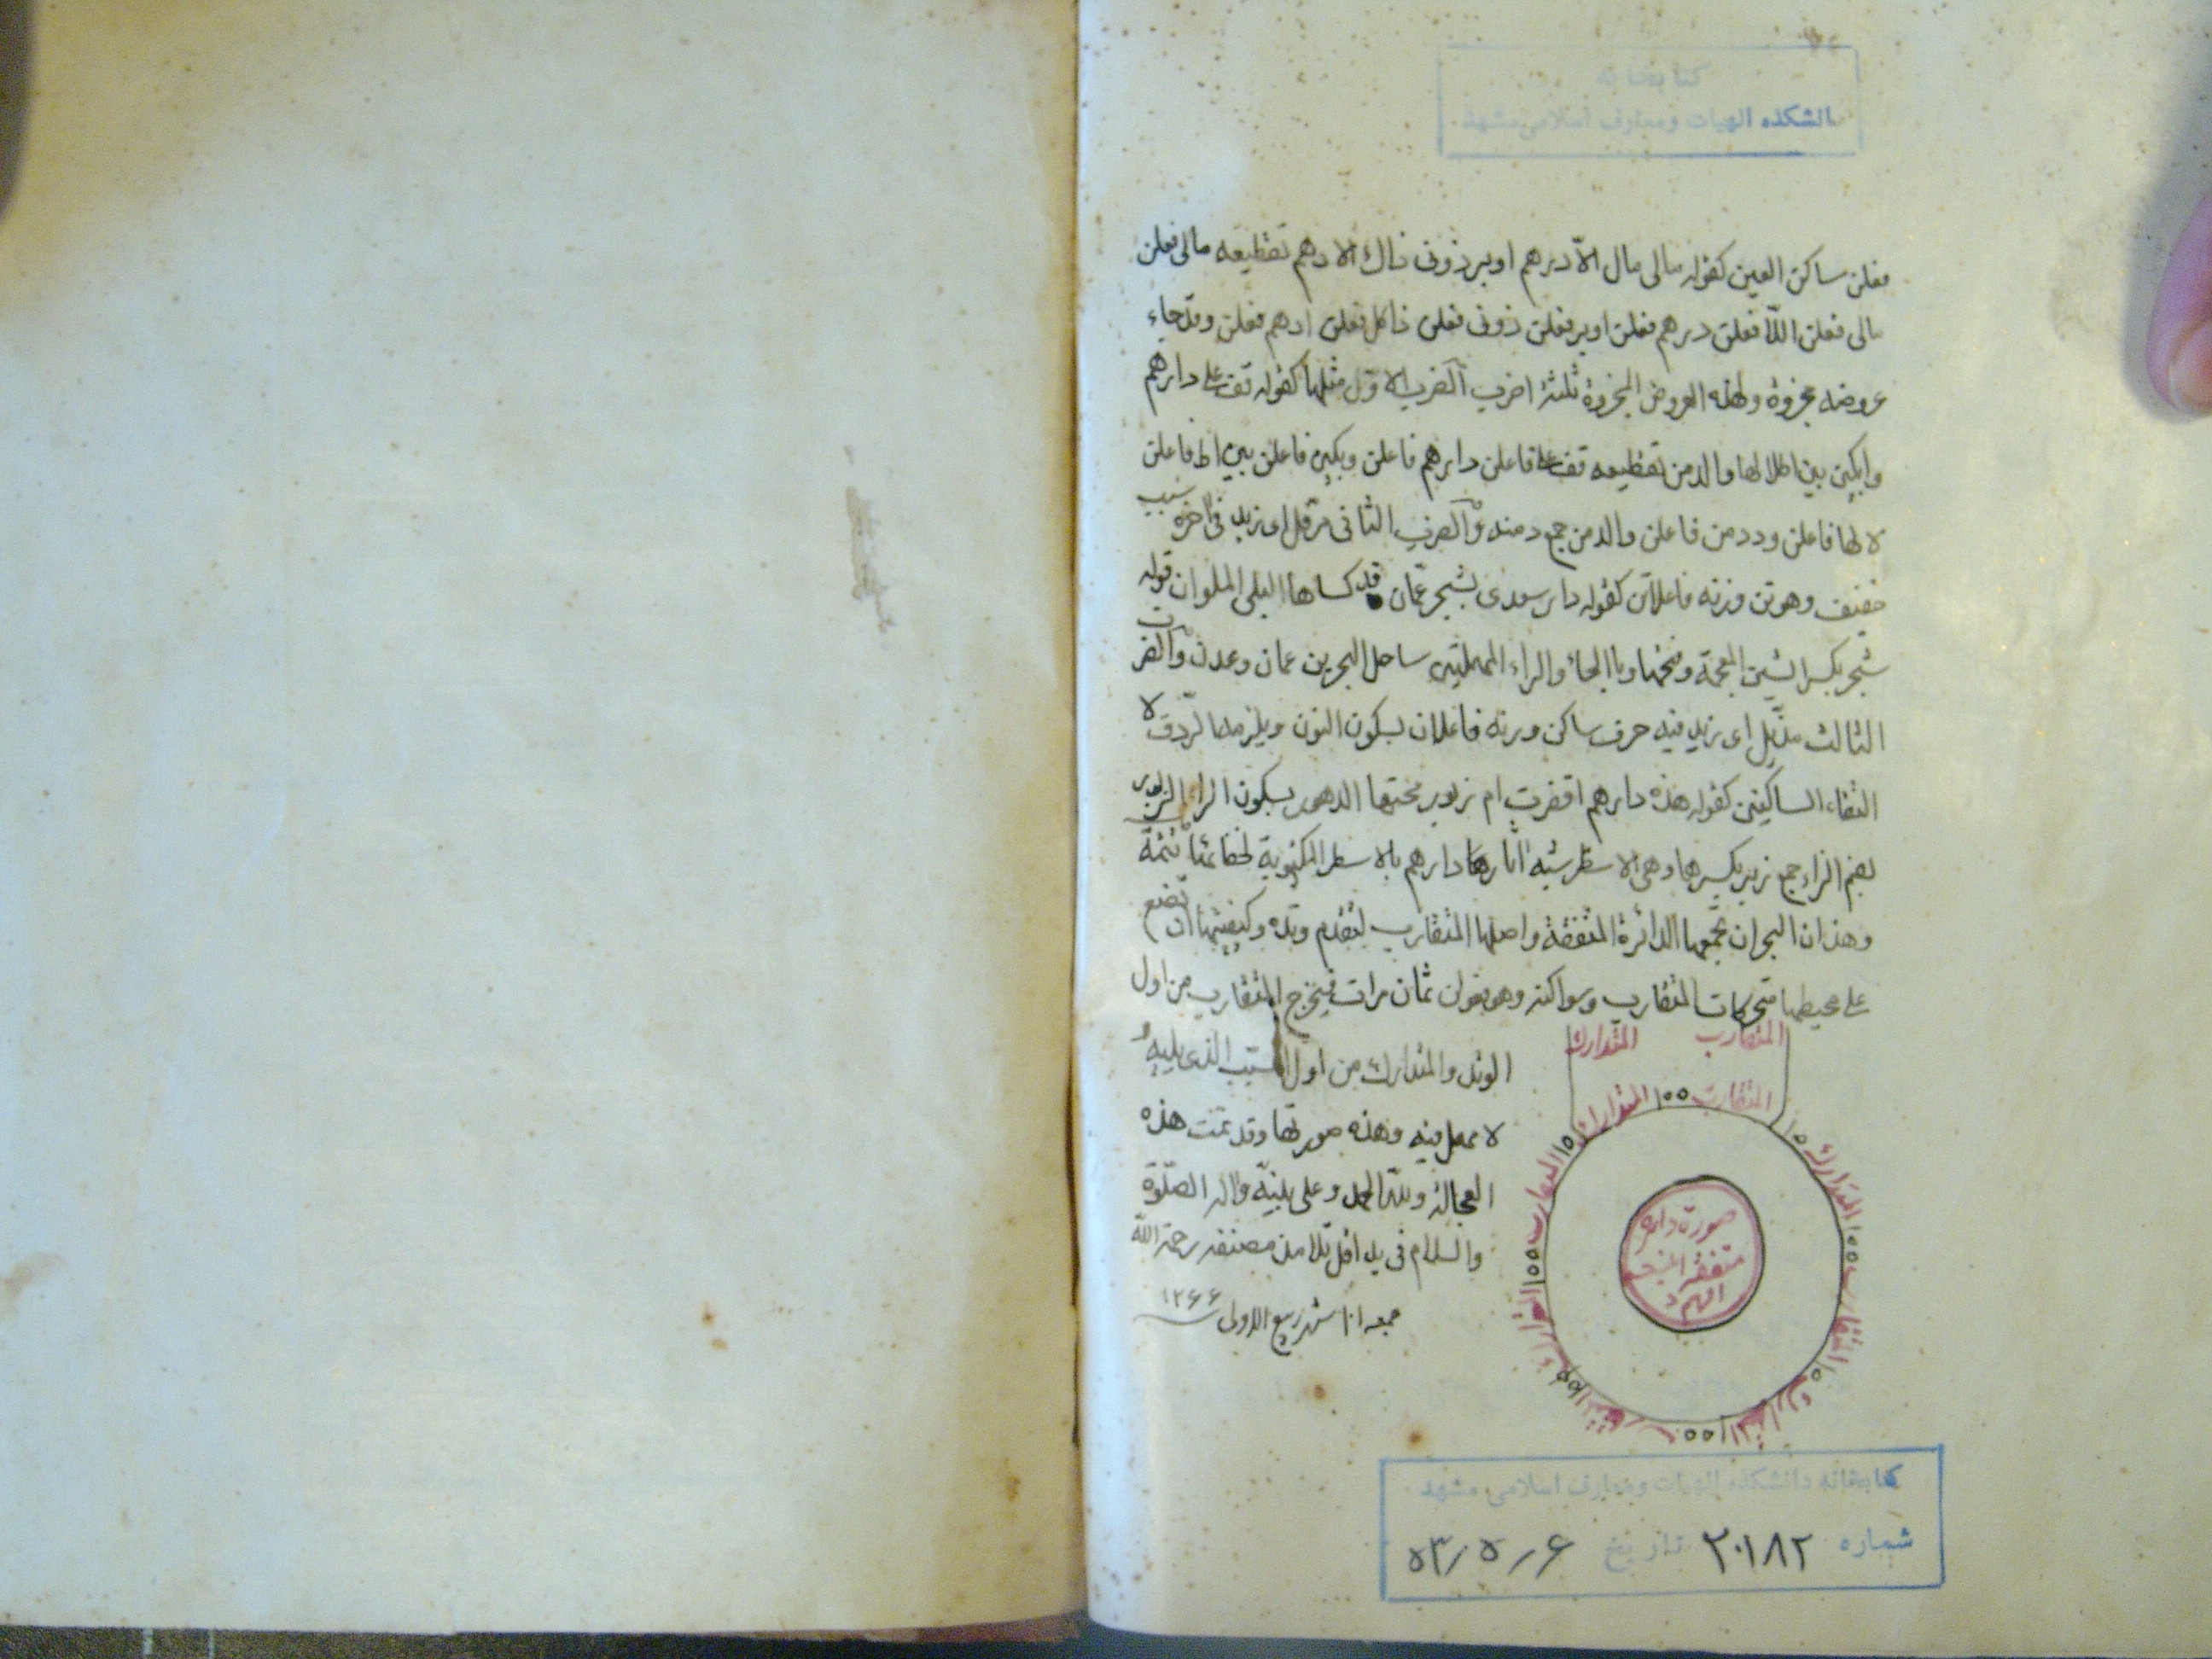 كتابخانه
دانشكده الهيات ومعارف اسلامى مشهد
فعلن ساكن العين كقوله مالى مال الّا درهم او برذونى ذاك الادهم تقطيعه مالى فعلن
مالى فعلن اللّا فعلن درهم فعلن اوبر فعلن ذونى فعلن ذاكل فعلن ادهم فعلن وقد جاء
عروضه مجزوة ولهذه العروض المجزوة ثلثة اضرب الضرب الاوّل مثلها كقوله قف على دارهم
وابكين بين اطلالها والدمن تقطيعه قف على فاعلن دارهم فاعلن وبكين فاعلن بين اط فاعلن
لالها فاعلن ودمن فاعلن والدمن جمع دمنه والضرب الثانى مرفّل اى زيد فى اخره سبب
خفيف وهو تن وزنه فاعلاتن كقوله دار سعدى بشحر عمان قد كساها البلى الملوان قوله
شحر بكسر الشين المعجمة وفتحها وبا الحاء والراء المهملتين ساحل البحر بين عمان وعدن والضرب
الثالث مذيّل اى زيد فيه حرف ساكن وزنه فاعلان بسكون النون ويلزمه الرّدف لا
التقاء الساكنين كقوله هذه دارهم اقفرت ام زبور محتها الدهور بسكون الراء الزبور
بضم الزاء جمع زبر بكسرها وهى الاسطر شبه اثارها دارهم بالاسطر المكتوبة لخفائها تتمّة
وهذان البحران تجمعها الدائرة المتفقة واصلها المتقارب لتقدم وتده وكيفيتها ان تضع
على محيطها متحركات المتقارب وسواكنه وهو فعولن ثمان مرات فيخرج المتقارب من اول
الوتد والمتدارك من اول السبب الذى يليه
لا مهمل فيه وهذه صورتها وقد تمت هذه
العجالة وللّه الحمد وعلى نبيّه واله الصّلوة
والسلام فى يد اقل تلامذ مصنفه رحمة اللّه
جمعه ١٠ شهر ربيع الاولى ١٢٦٦
المتقارب المتدارك
المتقارب المتدارك
صورة دايره
متفقه
كتابخانه دانشكده الهيات ومعارف اسلامى مشهد
شماره ٢٠١٨٢ تاريخ ٥٣/٥/۶